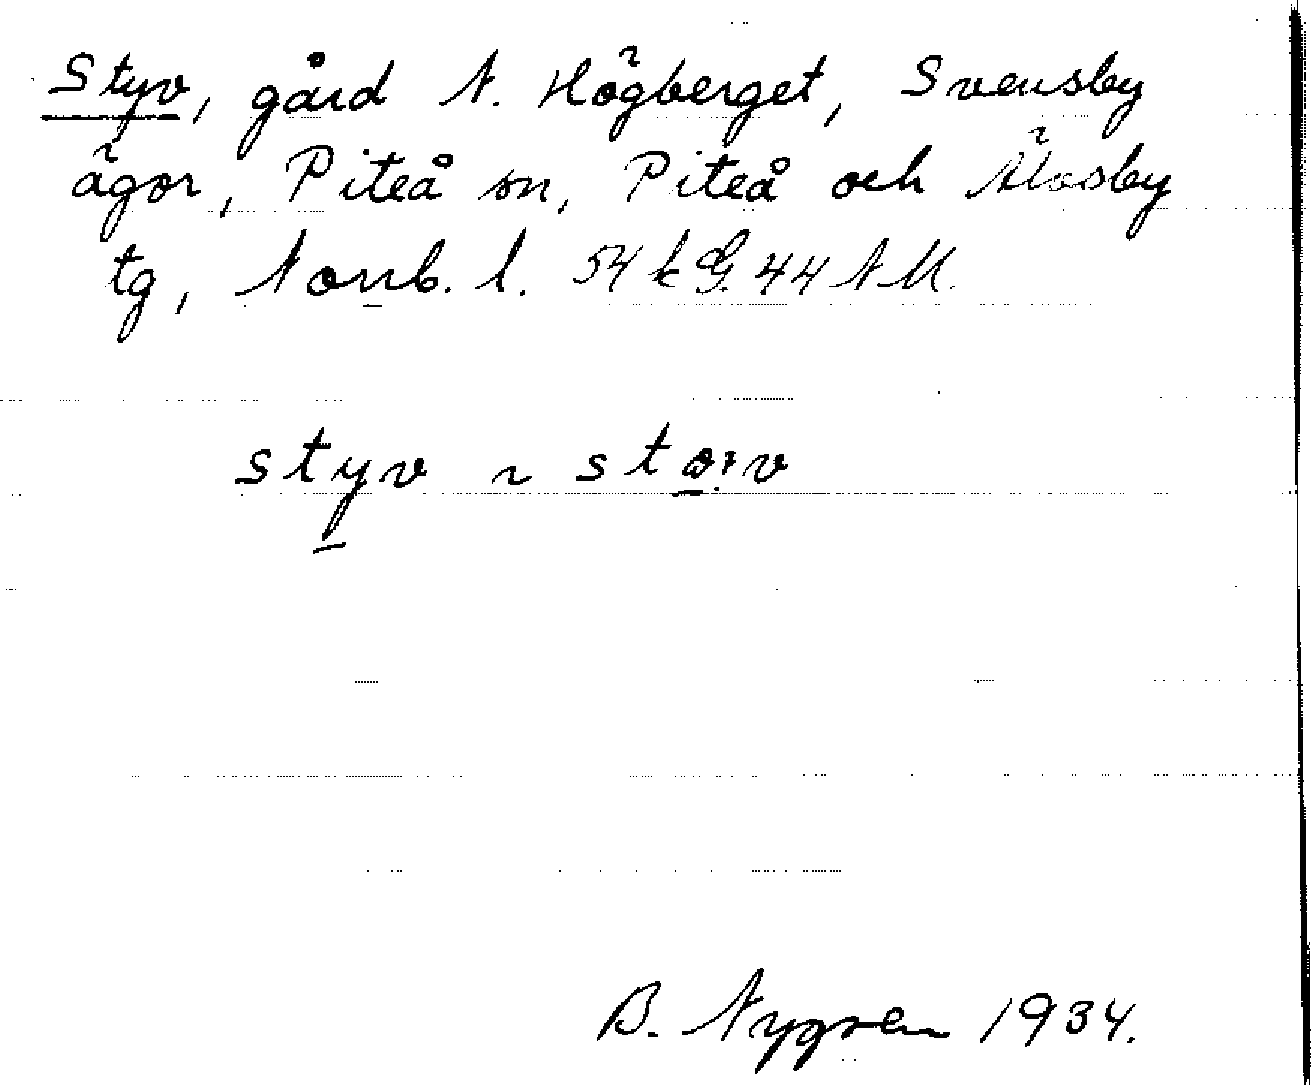 Styv, gård N. Högberget, Svensby
ägor, Piteå sn, Piteå och Älvsby
tg, Norrb. l. 54 k G. 44 N M.
styv ~ stø:v
B. Nygren 1934.